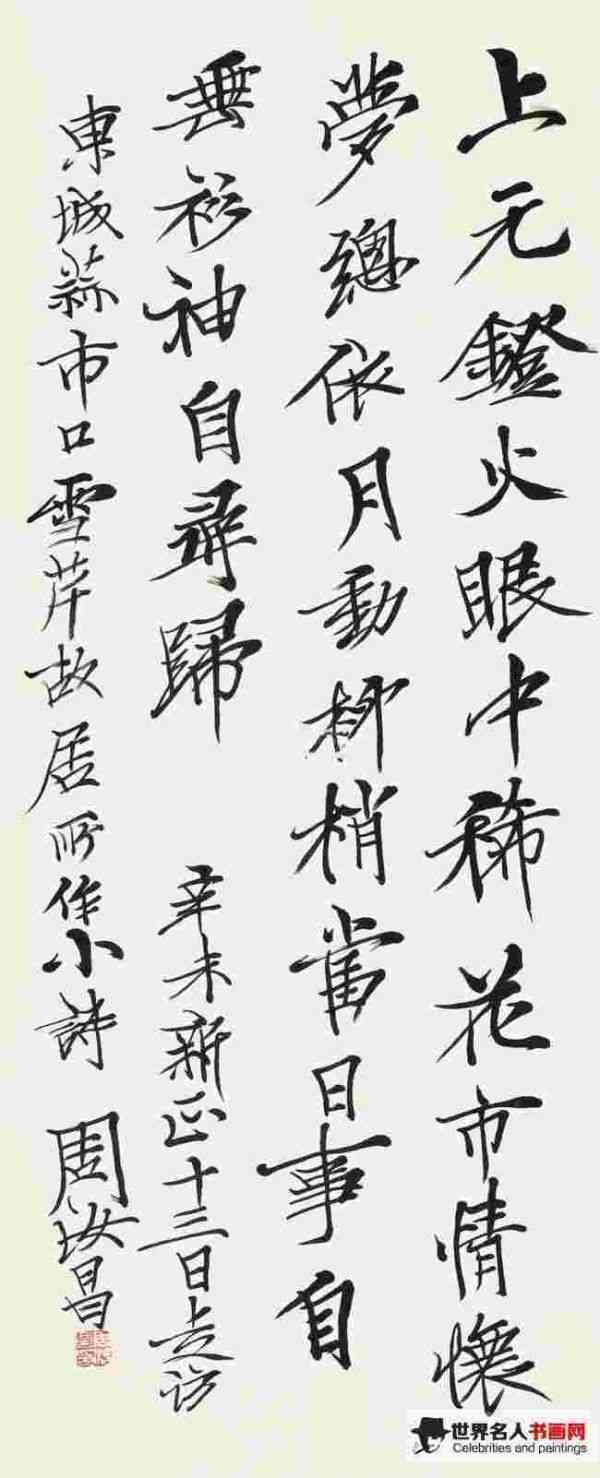 上元鐙火眼中稀花市情懷
夢總依月動柳梢當日事自
無衫袖自尋歸 辛未新正十三日走訪
東城蒜市口雪芹故居所作小詩 周汝昌
世界名人书画网
Celebrities and paintings